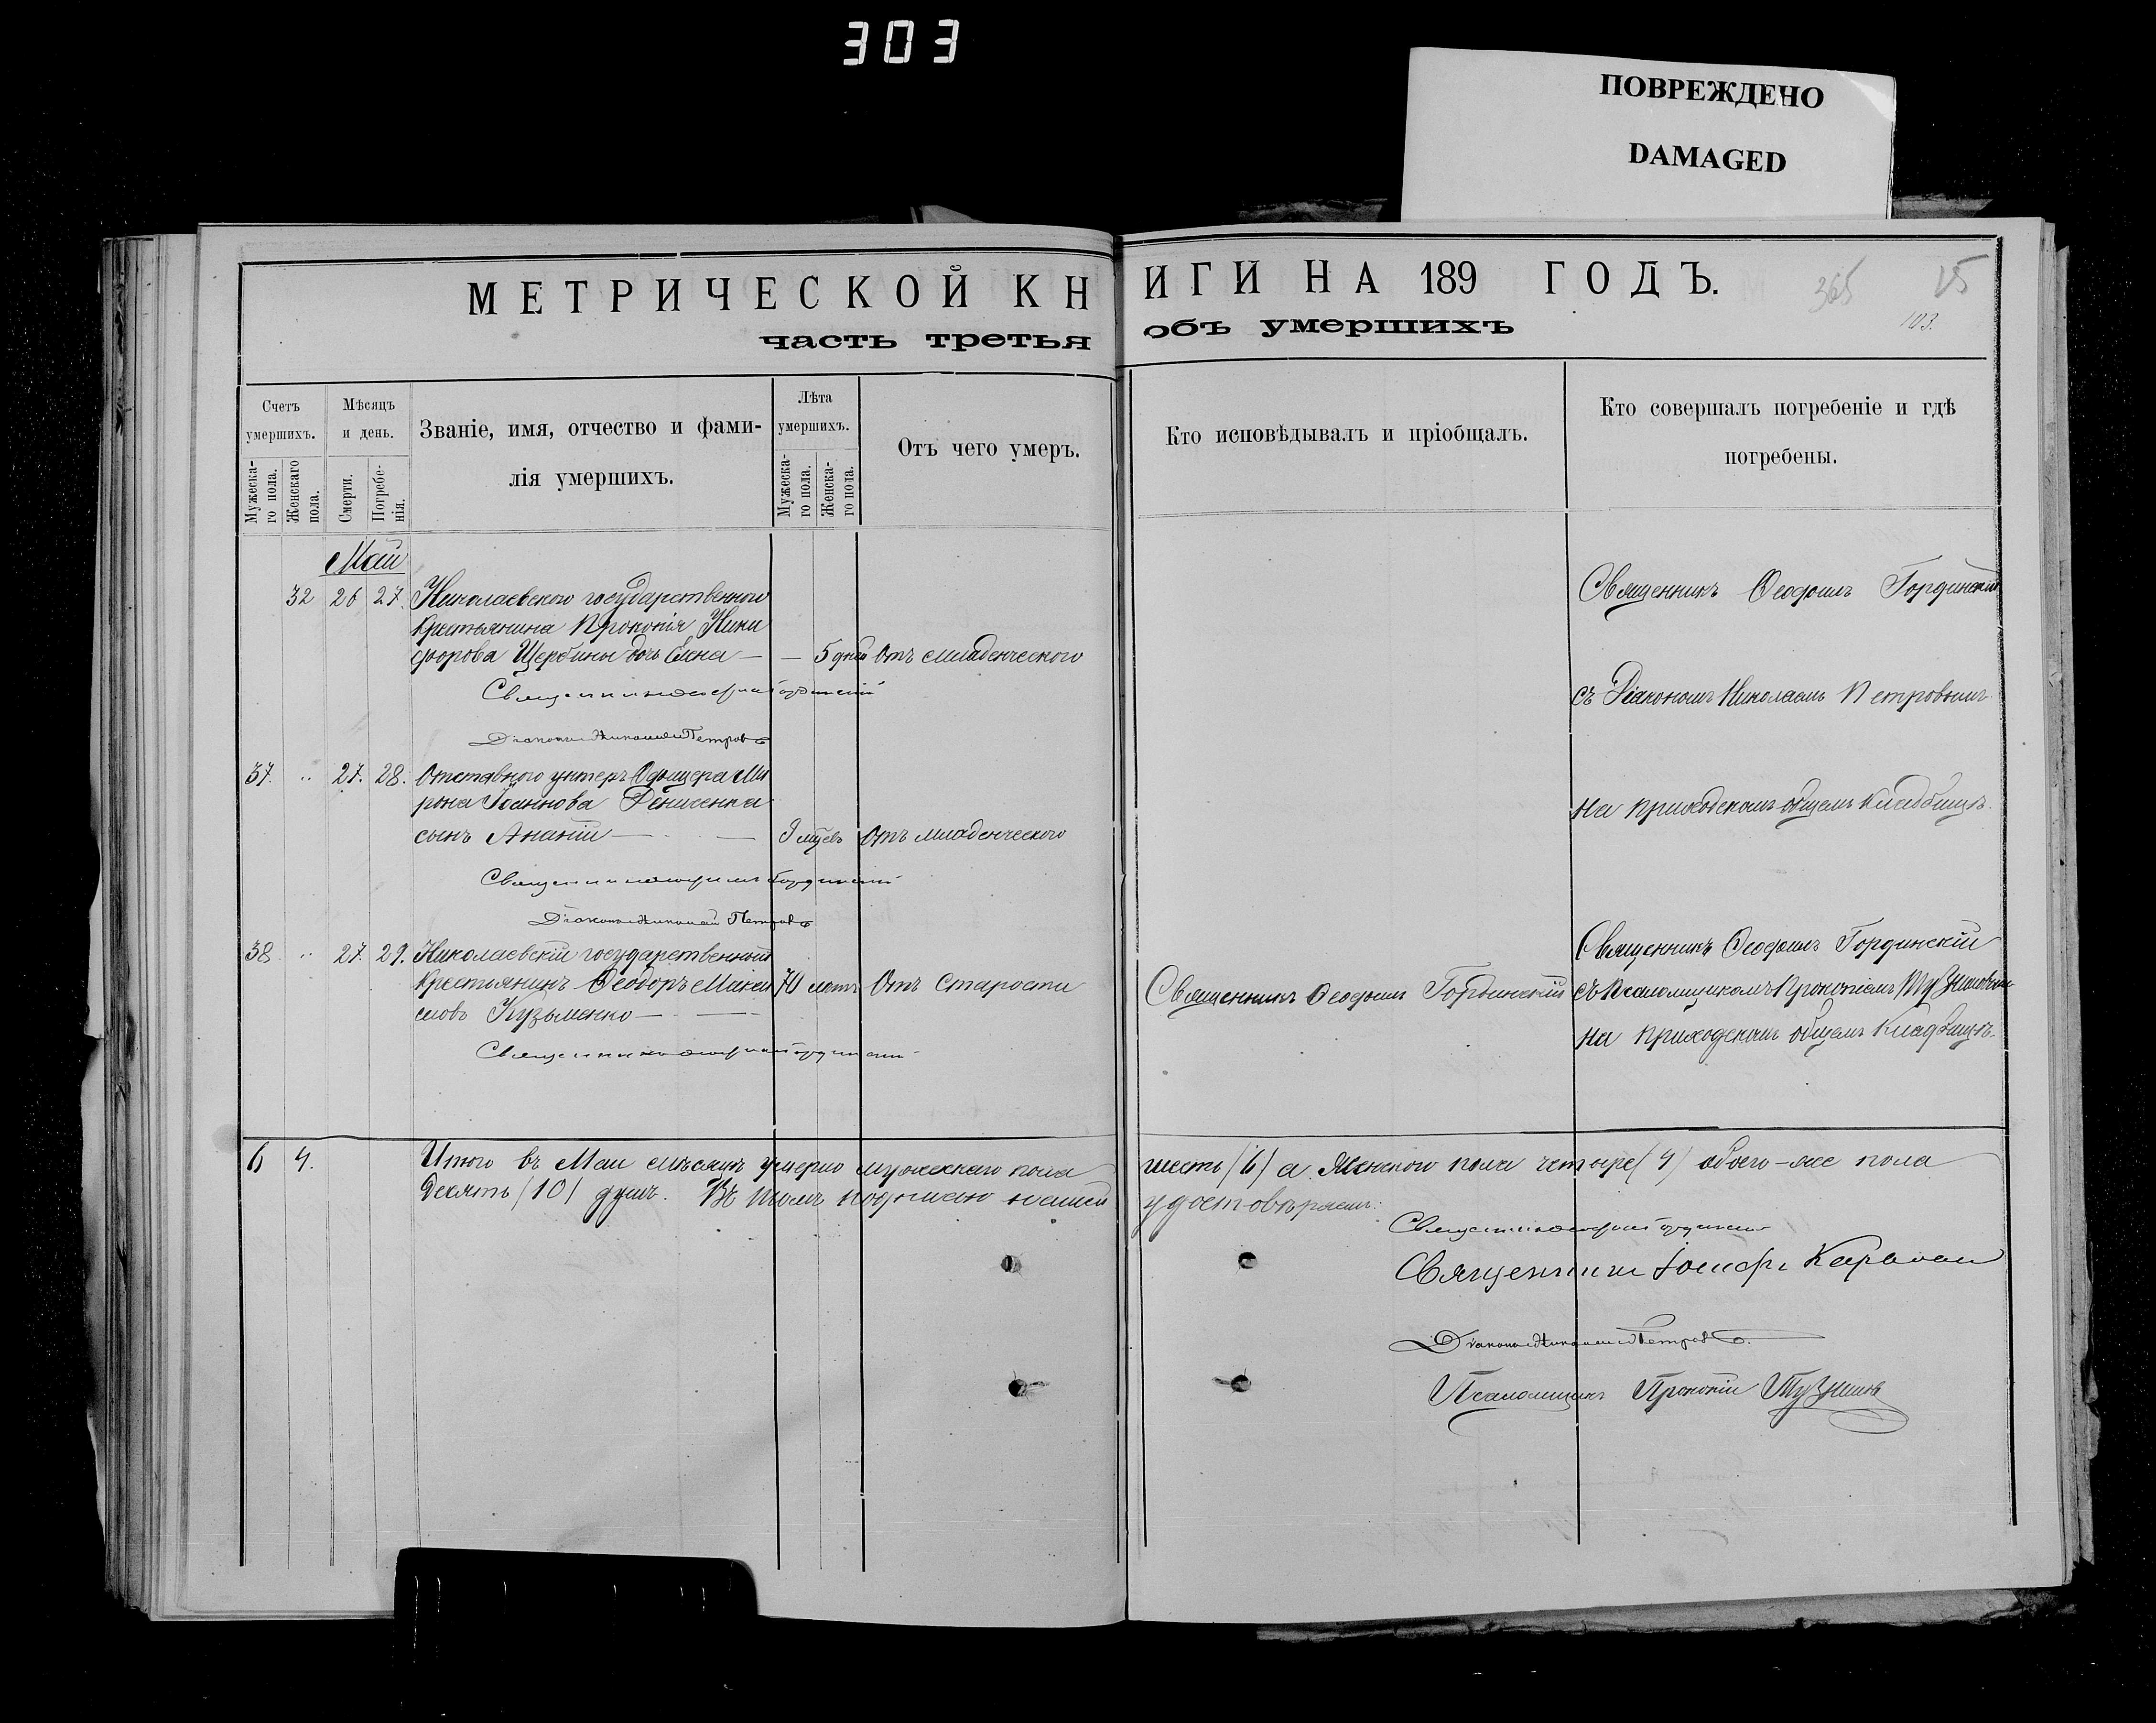 303
ПОВРЕЖДЕНО
DAMAGED
МЕТРИЧЕСКОЙ КНИГИ НА 189 ГОДЪ.
365
25
103.
часть третья объ умершихъ
Счетъ умершихъ.
Мужеска-го пола.
Женскаго пола.
Мѣсяцъ и день.
Смерти.
Погребе-нія.
Званіе, имя, отчество и фами-
лія умершихъ.
Лѣта умершихъ.
Мужеска-го пола.
Женска-го пола.
Отъ чего умеръ.
Кто исповѣдывалъ и пріобщалъ.
Кто совершалъ погребеніе и гдѣ
погребены.
Май
32 26 27. Николаевского государственного
Крестьянина Прокопія Ники
форова Щербины дочь Елена — — 5 дней Отъ младенческого
Священникъ Ѳеофилъ Гординскій
Діаконъ Николай Петровъ
Священникъ Ѳеофилъ Гординскій
съ Діакономъ Николаемъ Петровымъ
на приходскомъ общемъ кладбищѣ.
37. „ 27. 28. Отставного унтеръ Офицера Ми
рона Іоаннова Денисенка
сынъ Ананій — — мцевъ Отъ младенческого
Священникъ Ѳеофилъ Гординскій
Діаконъ Николай Петровъ
38 „ 27. 29. Николаевскій государственный
Крестьянинъ Ѳеодоръ Макси 70 летъ Отъ Старости
мовъ Кузьменко — —
Священникъ Ѳеофилъ Гординскій
Священникъ Ѳеофилъ Гординскій
Священникъ Ѳеофилъ Гординскій
съ Псаломщикомъ Прокопіемъ
на приходскомъ общемъ Кладбищѣ.
6 4. Итого въ Маи мѣсяцѣ умерло мужескаго пола шесть (6) а женского пола четыре (4) обоего-же пола
десять (10) душъ. Въ чемъ подписью нашей удостовѣряемъ:
Священникъ Ѳеофилъ Гординскій
Священникъ Іосифъ
Діаконъ Николай Петровъ.
Псаломщикъ Прокопій